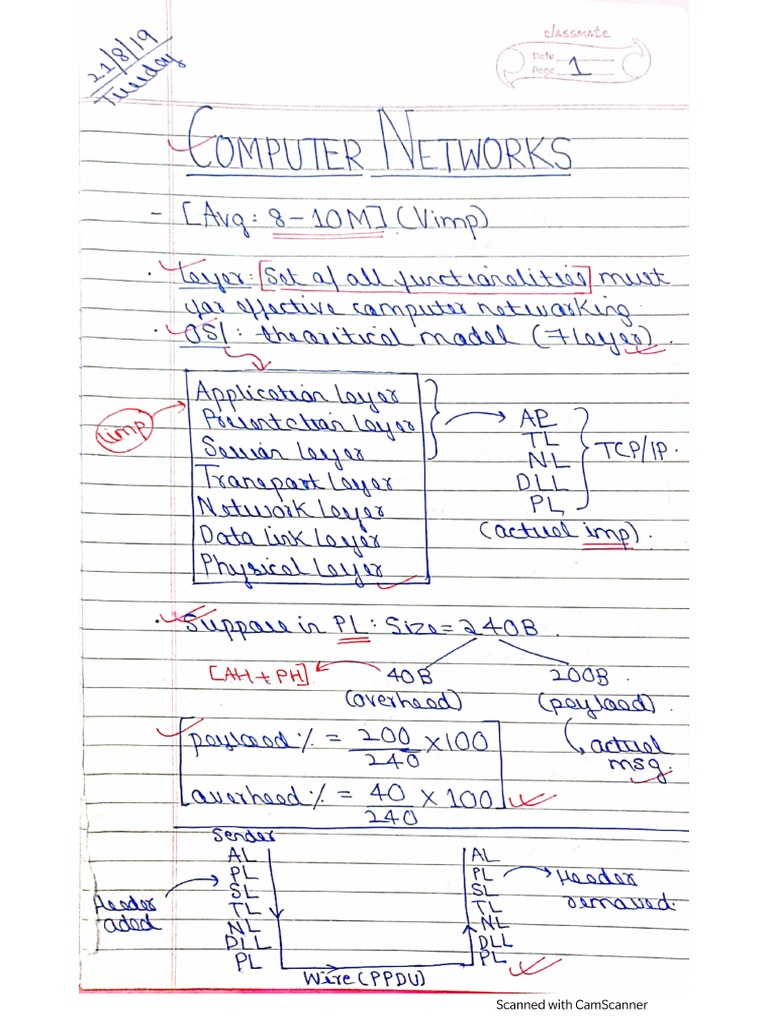 classmate
Date
Page 1
21/8/19
Tuesday
COMPUTER NETWORKS
- [Avg: 8-10M] (Vimp)
· Layer: [Set of all functionalities] must
for effective computer networking.
· OSI: theoritical model (7 layer).
Application layer
Presentation layer
Session layer
Transport layer
Network layer
Data link layer
Physical layer
imp
AL
TL
NL
DLL
PL
TCP/IP.
(actual imp).
· Suppose in PL: Size = 240B.
[AH + PH]
40B
(overhead)
200B.
(payload).
actual
msg.
payload % = 200/240 × 100
overhead % = 40/240 × 100
Sender
AL
PL
SL
TL
NL
DLL
PL
Header
aded
Wire (PPDU)
AL
PL
SL
TL
NL
DLL
PL
Header
removed.
Scanned with CamScanner